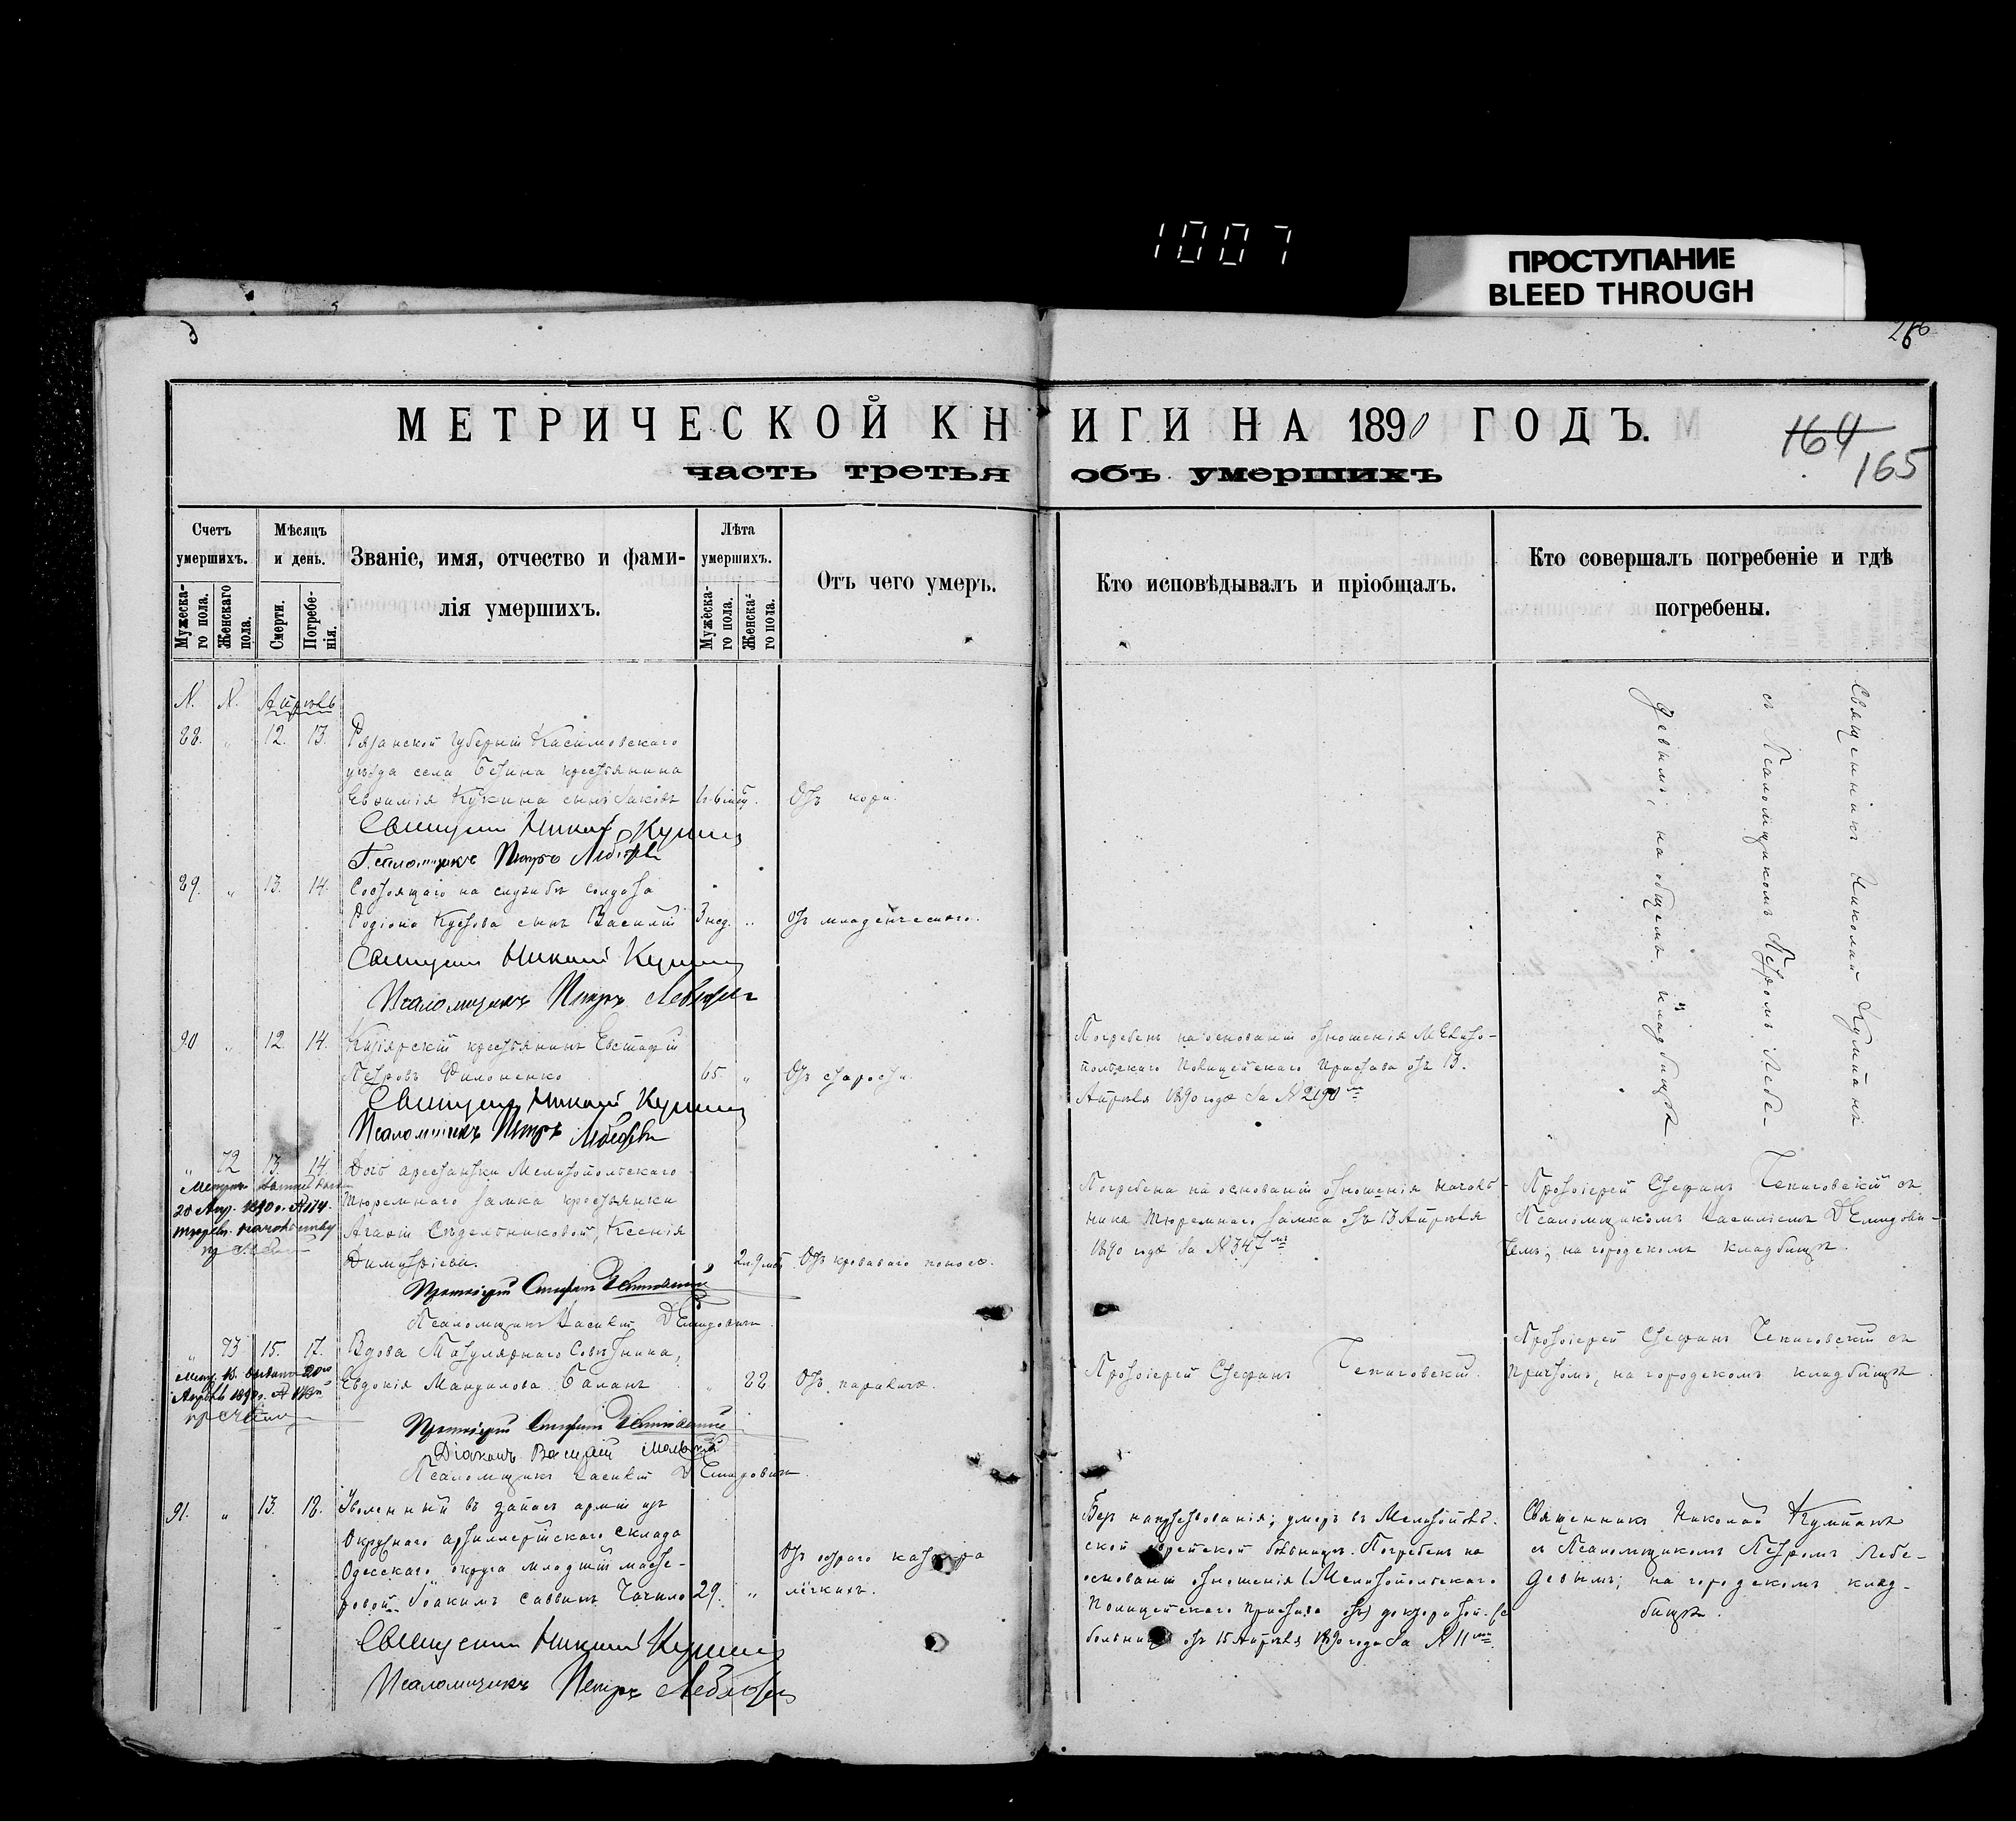 1007
ПРОСТУПАНИЕ
BLEED THROUGH
МЕТРИЧЕСКОЙ КНИГИ НА 1890 ГОДЪ.
164
165
часть третья объ умершихъ
Счетъ умершихъ.
Мужеска-го пола.
Женскаго пола.
Мѣсяцъ и день.
Смерти.
Погребе-нія.
Званіе, имя, отчество и фами-
лія умершихъ.
Лѣта умершихъ.
Мужеска-го пола.
Женска-го пола.
Отъ чего умеръ.
Кто исповѣдывалъ и пріобщалъ.
Кто совершалъ погребеніе и гдѣ
погребены.
N. N. Апрѣль
88. " 12. 13. Рязанской губерніи Касимовскаго
уѣзда села крестьянина
Евѳимія сынъ Іаковъ Отъ кори.
Священникъ Николай
Псаломщикъ Петръ Лебедевъ
89. " 13. 14. Состоящаго на службѣ солдата
Родіона сынъ Василій 3 нед. " Отъ младенческаго.
Священникъ Николай
Псаломщикъ Петръ Лебедевъ
Священникъ Николай
съ Псаломщикомъ Петромъ Лебе-
девымъ, на общемъ кладбищѣ
90 " 12. 14. крестьянинъ Евстафій
Петровъ Филоненко 65. " Отъ старости.
Погребенъ на основаніи отношенія Мелито-
польскаго Полицейскаго Пристава отъ 13.
Апрѣля 1890 года за N 2190
Священникъ Николай
Псаломщикъ Петръ Лебедевъ
" 72 13. 14. Дочь арестантки Мелитопольскаго
Тюремнаго замка крестьянки
Агаѳіи Сѣдельниковой, Ксенія
Димитріева. 2 л. 9 мѣс. Отъ кроваваго поноса.
20 Апр. 1890 г. № 114.
Погребена на основаніи отношенія Началь-
ника Тюремнаго замка отъ 13 Апрѣля
1890 года за N 347
Протоіерей Стефанъ съ
Псаломщикомъ Василіемъ Демидови-
чемъ; на городскомъ кладбищѣ.
Протоіерей Стефанъ
Псаломщикъ Василій Демидовичъ
" 73 15. 17. Вдова Титулярнаго Совѣтника,
Евдокія Балан " 82. Отъ паралича.
Протоіерей Стефанъ
Протоіерей Стефанъ съ
причтомъ, на городскомъ кладбищѣ
Протоіерей Стефанъ
Діаконъ Василій
Псаломщикъ Василій Демидовичъ
91. " 13. 18. Уволенный въ запасъ арміи изъ
Окружнаго артиллерійскаго склада
Одесскаго округа младшій масте-
ровой Іоакимъ Саввинъ 29. " Отъ остраго катарра
лёгкихъ.
Безъ напутствованія; умеръ въ Мелитополь-
ской еврейской больницѣ. Погребенъ на
основаніи отношенія Мелитопольскаго
Полицейскаго Пристава
больницы отъ 15 Апрѣля 1890 года за N 11
Священникъ Николай
съ Псаломщикомъ Петромъ Лебе-
девымъ; на городскомъ клад-
бищѣ.
Священникъ Николай
Псаломщикъ Петръ Лебедевъ